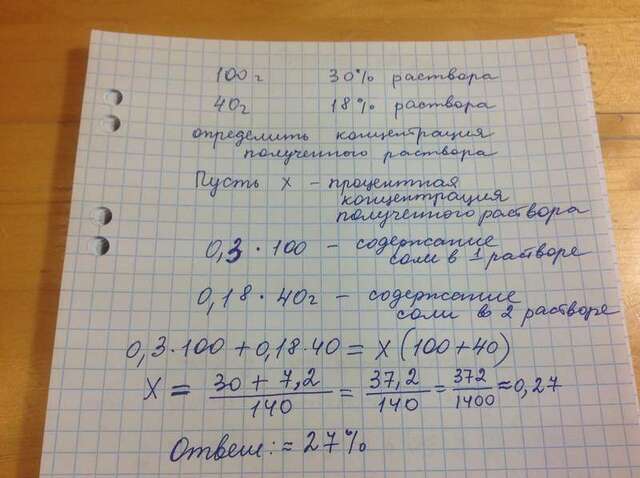 100 г 30% раствора
40г 18% раствора
определить концентрация
полученного раствора
Пусть х – процентная
концентрация
полученного раствора
0,3 · 100 – содержание
соли в 1 растворе
0,18 · 40г – содержание
соли в 2 растворе
0,3·100 + 0,18·40 = х (100+40)
х = 30 + 7,2 / 140 = 37,2 / 140 = 372 / 1400 ≈ 0,27
Ответ: ≈ 27%